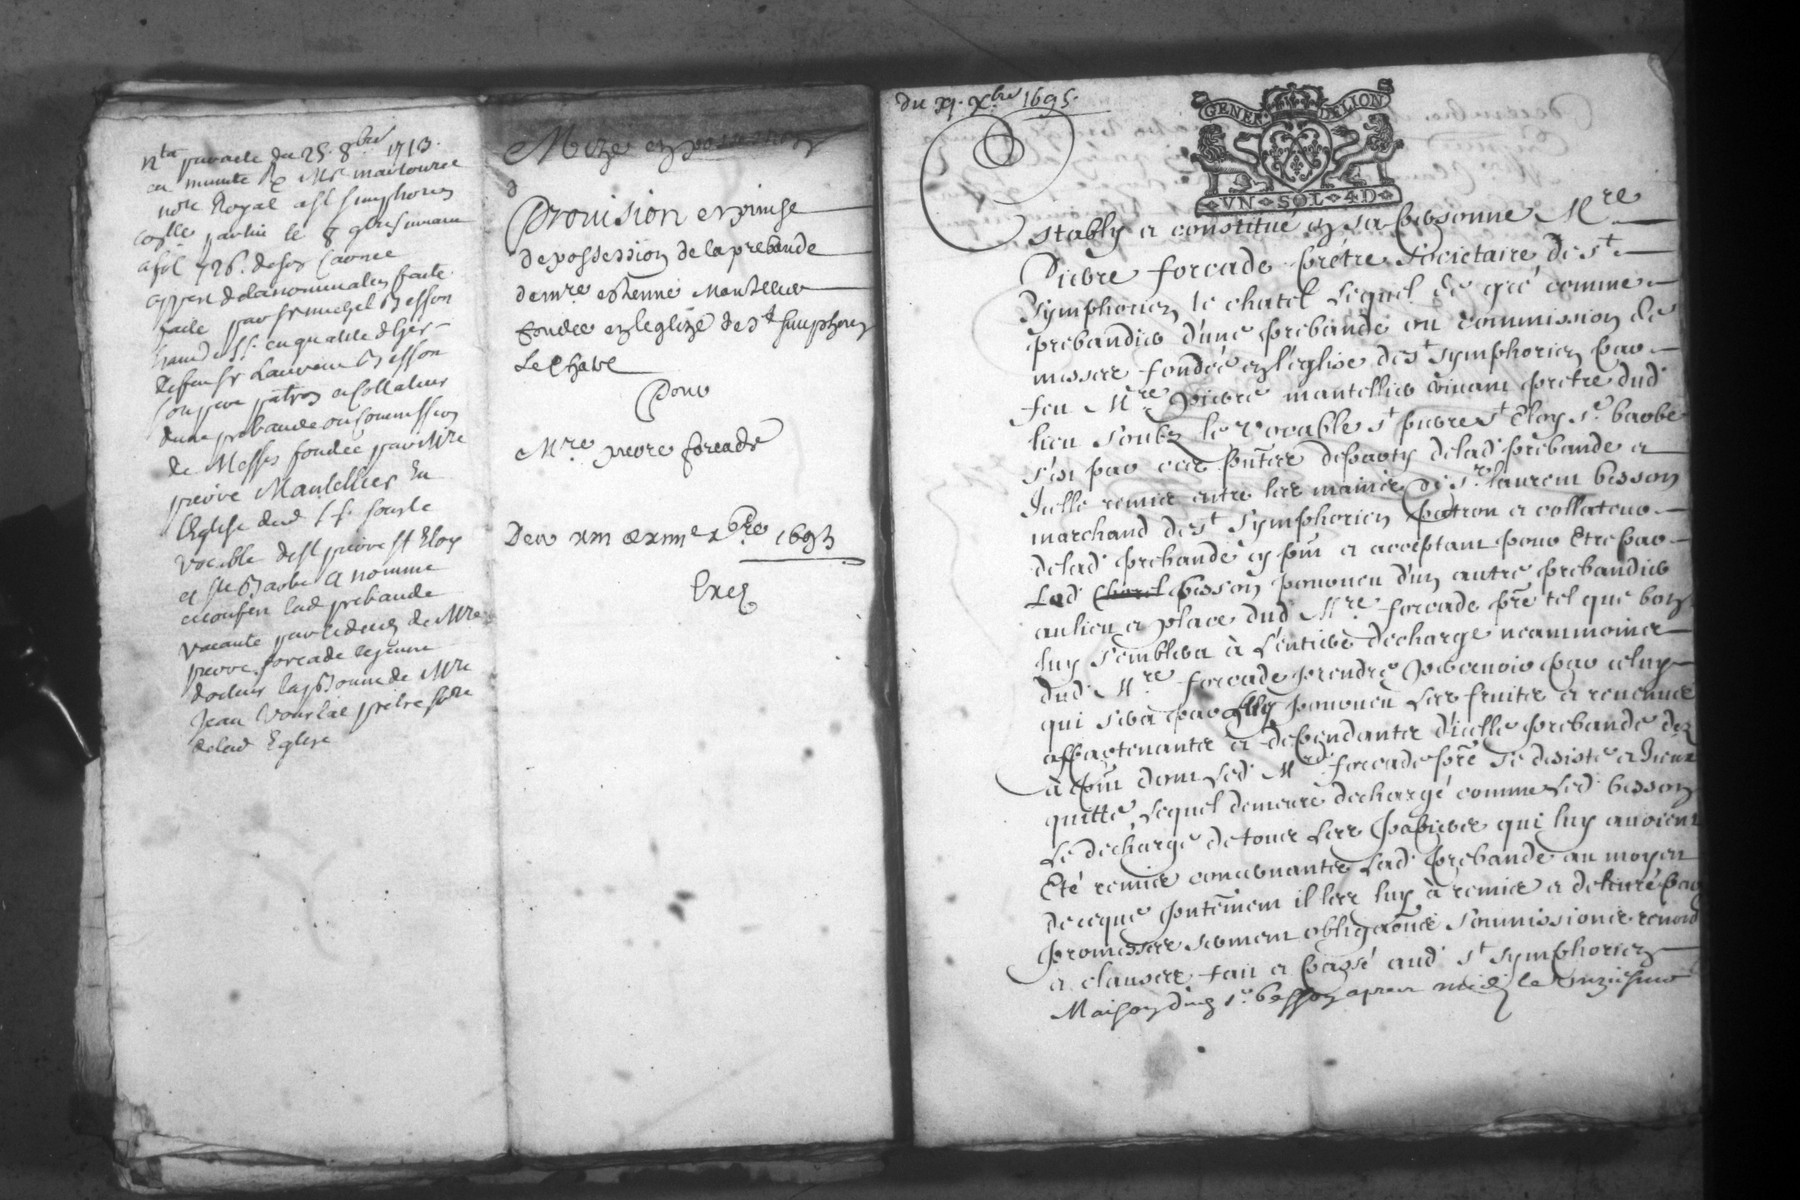 nta par acte du 25. 8bre 1713.
en minute Mr mailourre
nore Royal a St Simphorien
a fol 726. de son
appert de la nomination faite
faite par Sr michel Besson
marchand a St S. en qualité d'her-
de feu Sr Laurens Besson
son pere patron et collateur
dune prebande ou Commission
de Messes fondée par Mre
pierre Mantellier En
l'Eglise dud S. S. sous le
vocable de St pierre St Eloy
et Ste Barbe a nomme
et confere lad prebande
vacante par le deces de Mre
pierre forcade le jeune
Jean pretre
de lad Eglise
Mize en possession
Provision et prinse
de possession de la prebande
de mre estienne Mantellier
fondee en leglize de St Simphorien
Le Chatel
Pour
Mre pierre forcade
Des xiii & xiiii xbre 1693
du XI. Xbre 1695.
GENER. DE LION
VN SOL 4D
Estably et constitué en sa personne Mre
Pierre forcade prétre Societaire de St
Symphorien le chatel lequel de gré comme
prebandier d'une prebande ou commission de
messes fondée en l'église de St Symphorien par
feu Mre pierre mantellier vivant prétre dud
lieu Soubz le vocable St pierre St Eloy Ste barbe
s'est par ces pntes departy de lad prébande et
Icelle remise entre les mains de Sr laurent besson
marchand de St Symphorien patron et collateur
de lad prebande cy pnt et acceptant pour Etre par
Led besson pourveu d'un autre prebandier
au lieu et place dud Mre forcade pre tel que bon
luy semblera à l'entiere decharge neammoins
dud Mre forcade prendre percevoir par celuy
qui sera par luy pourveu les fruits et revenus
appartenants et dependants d'icelle prebande dez
à pnt dont led Mre forcade pre se desiste et
quitte, lequel demeure dechargé comme led besson
le décharge de tous les papiers qui luy avoient
Eté remis concernants lad prebande au moyen
de ceque pntement il les luy à remis et delivré par
promesses serment obligaons soumissions renon
et clauses fait et passé aud St Symphorien
Maison dud sr besson apres midy le onziesme